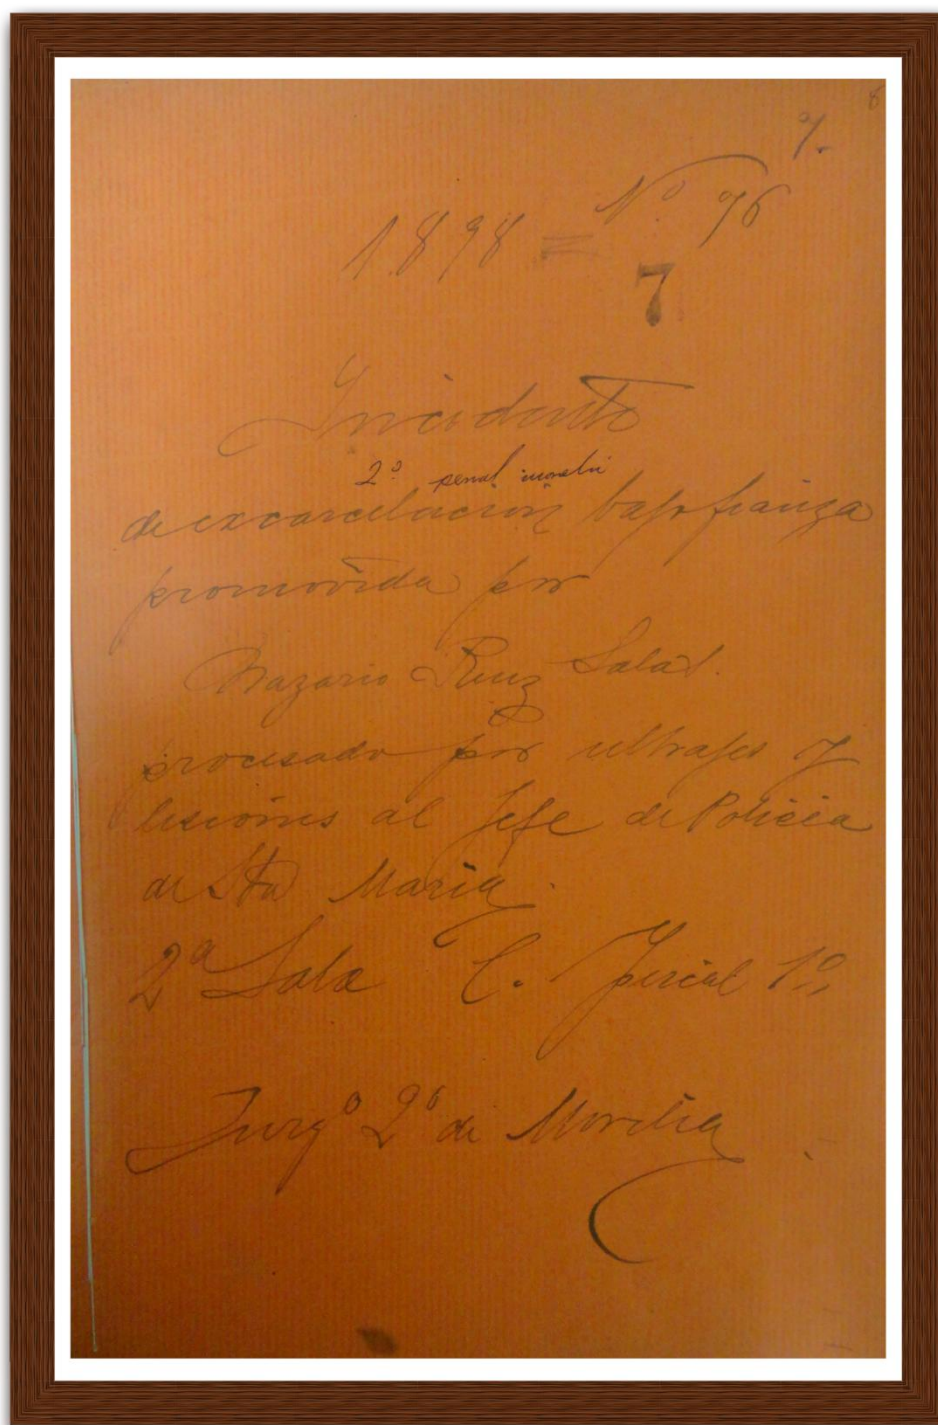 7.
1898 = Nº 76
7
Incidente
2º penal
de excarcelacion bajo fianza
promovida por
Nazario Ruiz Salal.
procesado por ultrajes y
lesiones al Jefe de Policia
de Sta Maria.
2ª Sala C. fiscal 1º,,
Juzgº 2º de Morelia